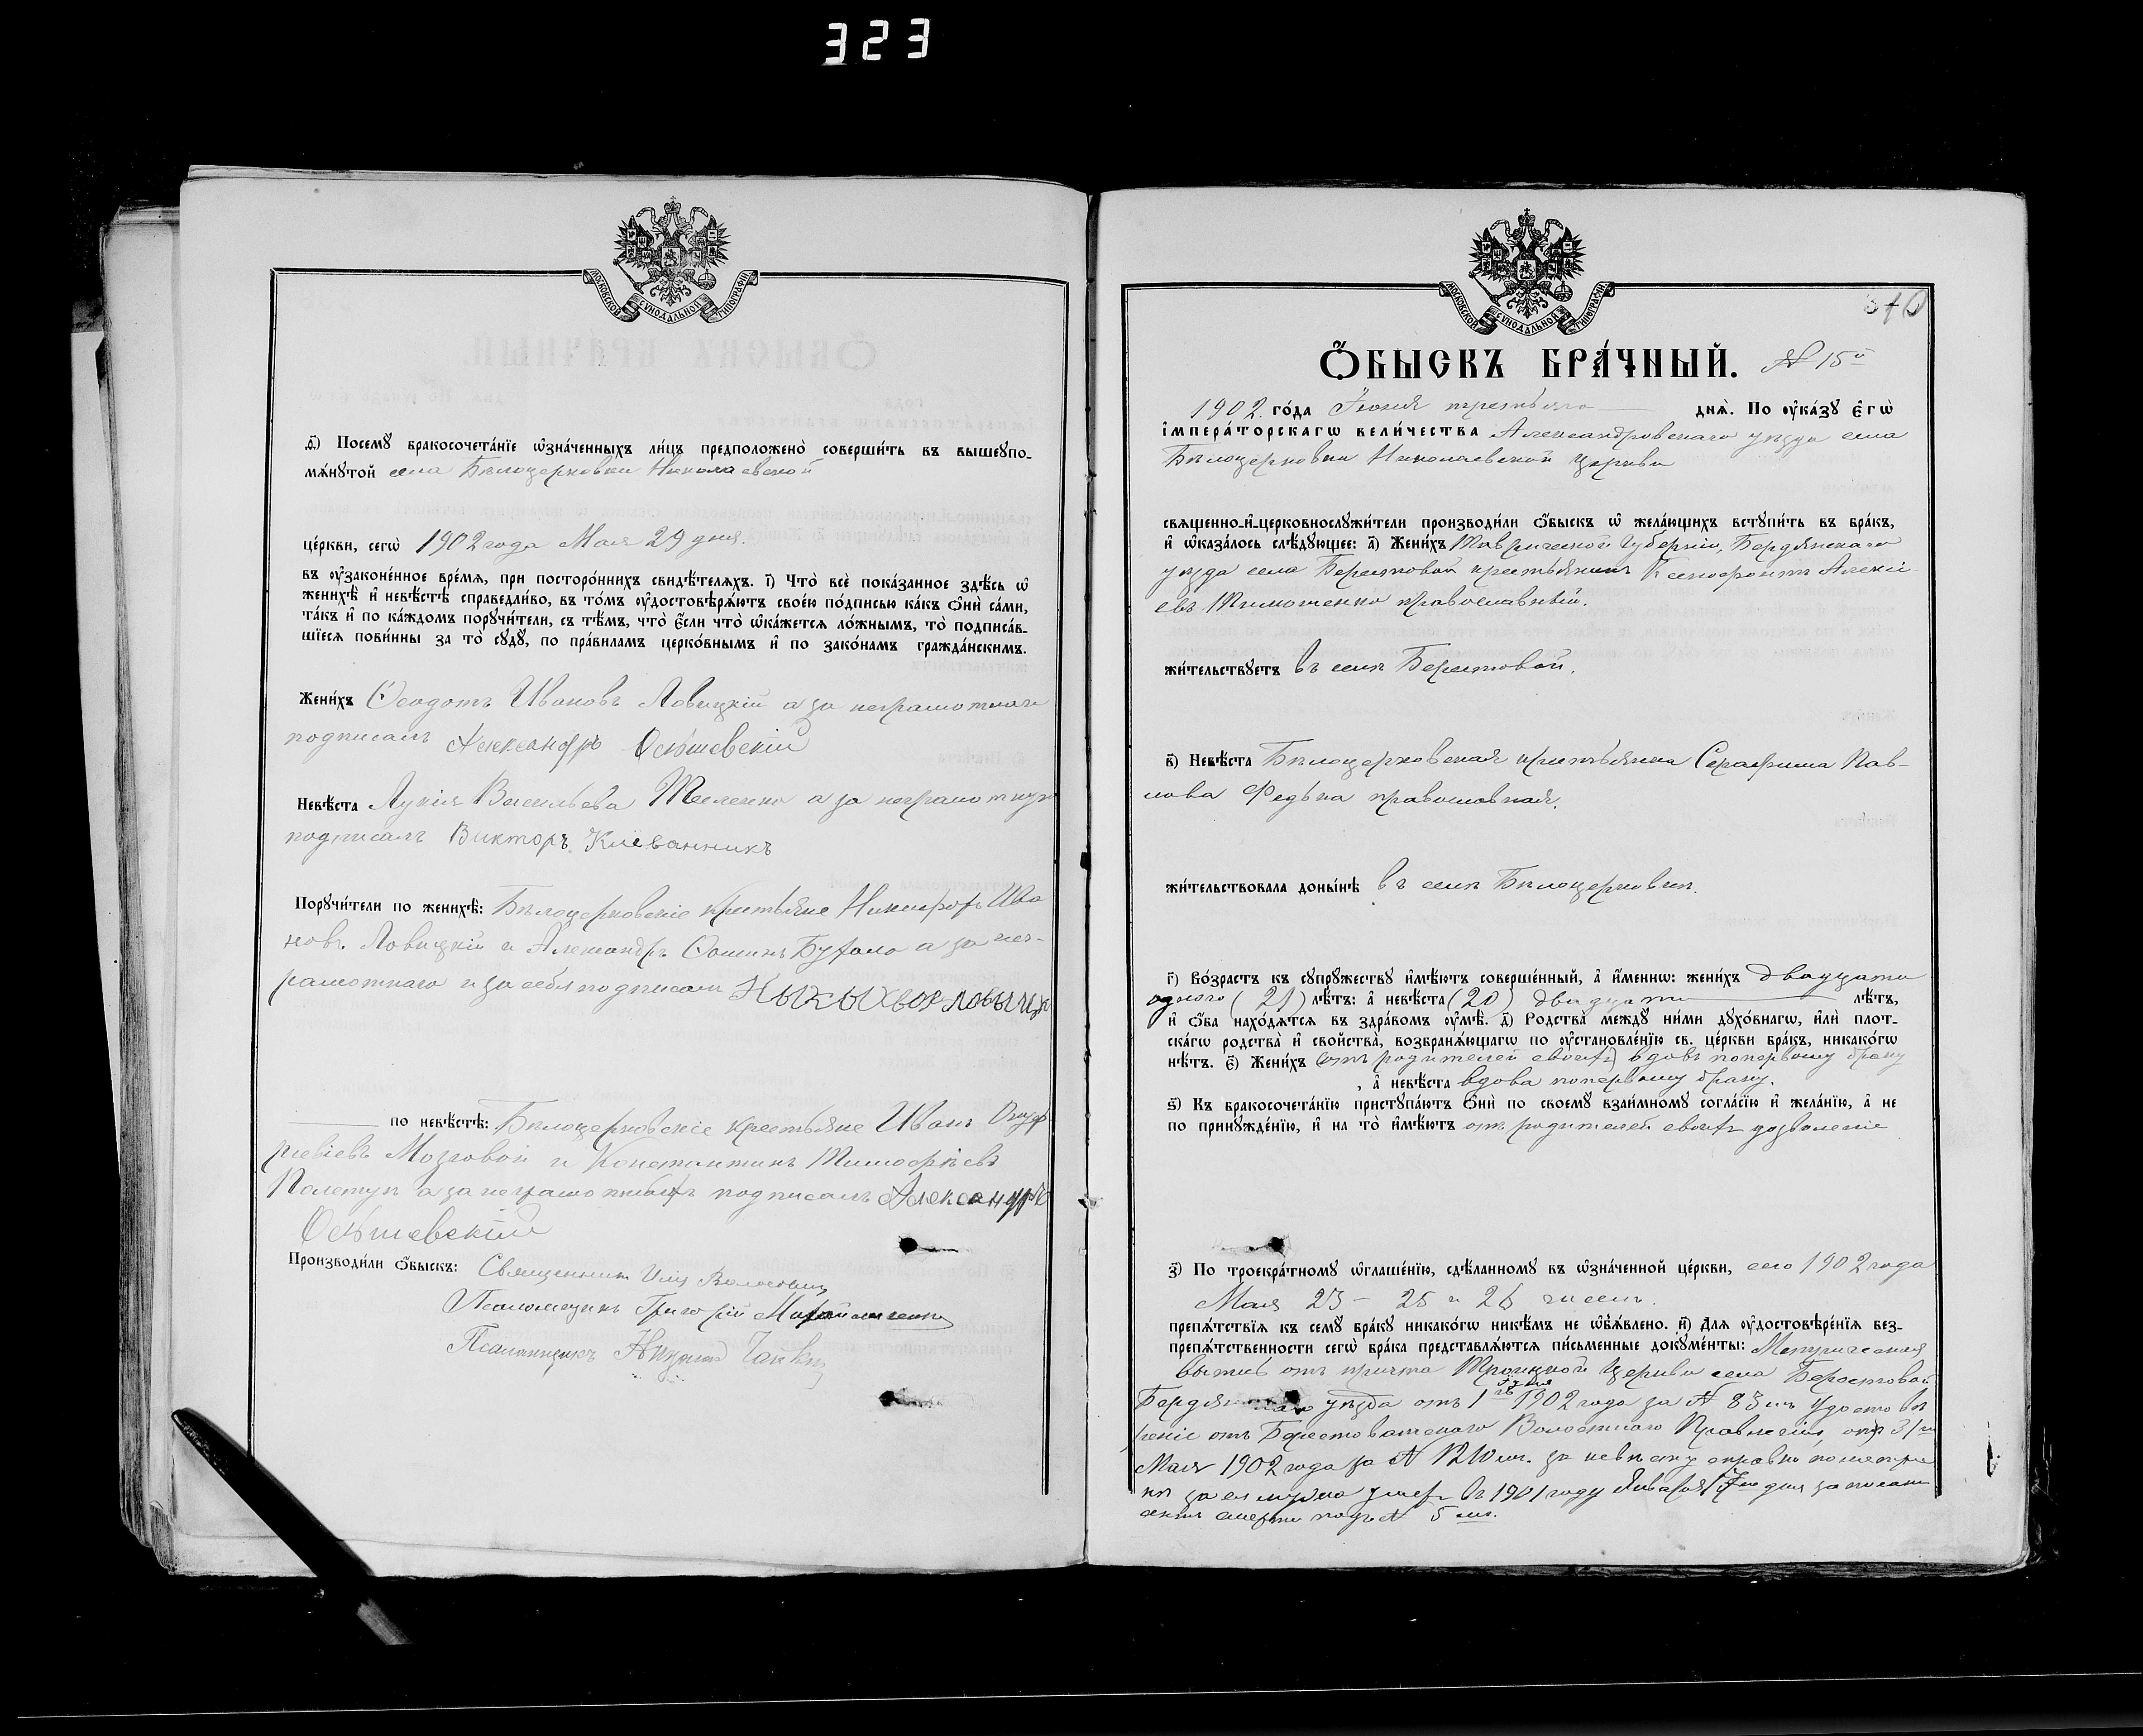 323
МОСКОВСКОЙ СѴНОДАЛЬНОЙ ТИПОГРАФИИ
д҃і) Посемꙋ бракосочета́нїе ѡ҆зна́ченныхъ ли́цъ предположено̀ соверши́ть въ вышеꙋпо-
мѧ́нꙋтой села Бѣлоцерковки Николаевской
це́ркви, сегѡ̀ 1902 года Мая 29 дня.
въ ᲂу҆законе́нное вре́мѧ, при посторо́ннихъ свидѣ́телѧхъ. і҃) Что̀ всѐ пока́занное здѣ́сь ѡ҆
женихѣ̀ и҆ невѣ́стѣ справедли́во, въ то́мъ ᲂу҆достовѣрѧ́ютъ свое́ю по́дписью ка́къ ѻ҆нѝ са́ми,
та́къ и҆ по ка́ждомъ порꙋчи́тели, съ тѣ́мъ, что̀ є҆́сли что̀ ѡ҆ка́жется ло́жнымъ, то̀ подписа́в-
шїесѧ пови́нны за то̀ сꙋдꙋ̀, по пра́виламъ церко́внымъ и҆ по зако́намъ гражда́нскимъ.
Жени́хъ Ѳеодотъ Ивановъ Ловицкій а за неграмотнаго
подписалъ Александръ
Невѣ́ста Лукія Васильева а за неграмотную
подписалъ Викторъ
Порꙋчи́тели по женихѣ̀: Бѣлоцерковскіе крестьяне Никифоръ Ива
новъ Ловицкій и Александръ Ѳоминъ а за нег-
рамотнаго и за себя подписалъ
по невѣ́стѣ: Бѣлоцерковскіе крестьяне Иванъ Онуф
ріевъ Мозговой и Константинъ Тимофѣевъ
а за неграмотныхъ подписалъ Александръ
Производи́ли ѻ҆́быскъ: Священникъ
Псаломщикъ Григорій
Псаломщикъ
МОСКОВСКОЙ СѴНОДАЛЬНОЙ ТИПОГРАФИИ
Ѻ҆́БЫСКЪ БРА́ЧНЫЙ. № 15й
1902. го́да Іюня третьяго днѧ̀. По ᲂу҆ка́зꙋ є҆гѡ̀
і҆мпера́торскагѡ вели́чества Александровскаго уѣзда села
Бѣлоцерковки Николаевской церкви
свѧще́нно-и҆-церковнослꙋжи́тели производи́ли ѻ҆́быскъ ѡ҆ жела́ющихъ встꙋпи́ть въ бра́къ,
и҆ ѡ҆каза́лось слѣ́дꙋющее: а҃) Жени́хъ Таврической Губерніи, Бердянскаго
уѣзда села Берестовой крестьянинъ Ксенофонтъ Алексі-
евъ Тимошенко православный.
жи́тельствꙋетъ въ селѣ Берестовой.
в҃) Невѣ́ста Бѣлоцерковская крестьянка Серафима Пав-
лова Федька православная.
жи́тельствовала доны́нѣ въ селѣ Бѣлоцерковкѣ.
г҃) Во́зрастъ къ сꙋпрꙋ́жествꙋ и҆мѣ́ютъ соверше́нный, а҆ и҆́меннѡ: жени́хъ двадцати
одного (21) лѣ́тъ: а҆ невѣ́ста (20) двадцати лѣ́тъ,
и҆ ѻ҆́ба нахо́дѧтсѧ въ здра́вомъ ᲂу҆мѣ̀. д҃) Родства̀ междꙋ̀ ни́ми дꙋхо́внагѡ, и҆лѝ плот-
ска́гѡ родства̀ и҆ свойства̀, возбранѧ́ющагѡ по ᲂу҆становле́нїю св. це́ркви бра́къ, никако́гѡ
нѣ́тъ. є҃) Жени́хъ (отъ родителей своихъ) вдовъ по первому браку
, а҆ невѣ́ста вдова по первому браку.
ѕ҃) Къ бракосочета́нїю пристꙋпа́ютъ ѻ҆нѝ по своемꙋ̀ взаи́мномꙋ согла́сїю и҆ жела́нїю, а҆ не
по принꙋжде́нїю, и҆ на то̀ и҆мѣ́ютъ отъ родителей своихъ дозволеніе
з҃) По троекра́тномꙋ ѡ҆глаше́нїю, сдѣ́ланномꙋ въ ѡ҆зна́ченной це́ркви, сего 1902 года
Мая 23 - 25 и 26 чиселъ.
препѧ́тствїѧ къ семꙋ̀ бра́кꙋ никако́гѡ никѣ́мъ не ѡ҆бъѧ́влено. и҃) Длѧ ᲂу҆достовѣре́нїѧ без-
препѧ́тственности сегѡ̀ бра́ка представлѧ́ютсѧ пи́сьменные докꙋме́нты: Метрическая
выпись отъ причта Троицкой Церкви села Берестовой
уѣзда отъ 1го Іюня 1902 года за № 83мъ Удостовѣ
реніе отъ Берестоватскаго Волостнаго Правленія, отъ 31го
Мая 1902 года за № за невѣсту справка по метри
кѣ за ея мужа умер. въ 1901 году Января дня записан
смерти подъ № 5 мъ.